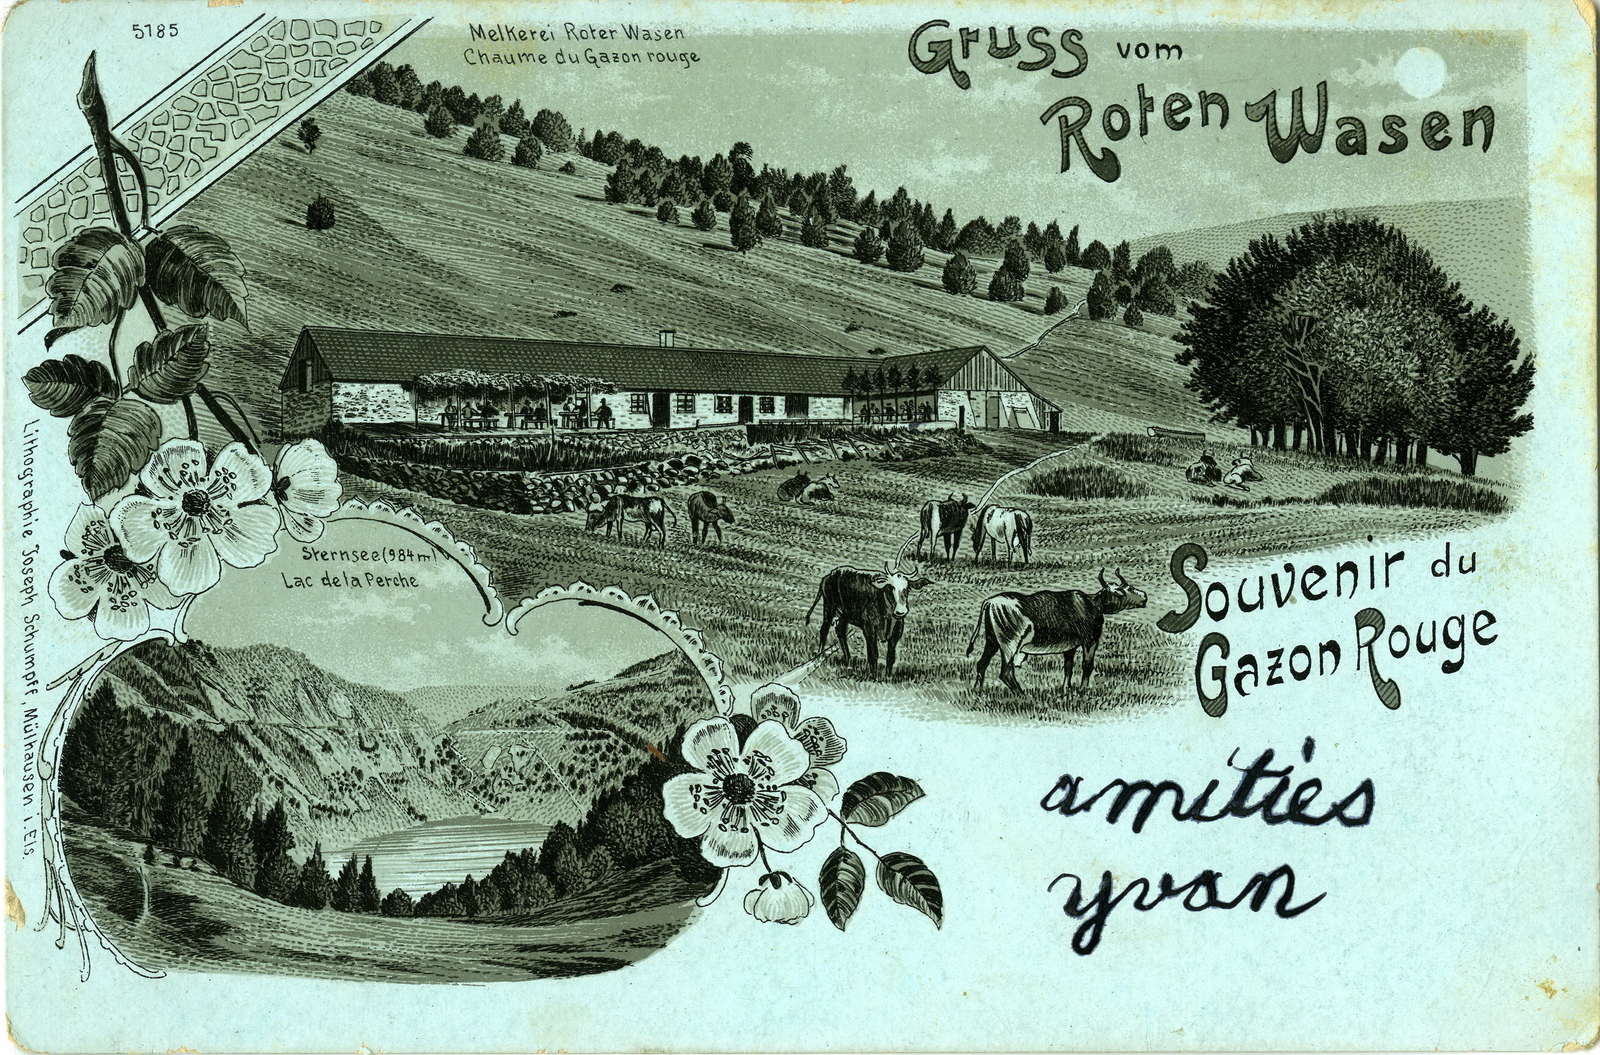 5185
Melkerei Roter Wasen
Chaume du Gazon rouge
Gruss vom
Roten Wasen
Sternsee (984 m)
Lac de la Perche
Souvenir du
Gazon Rouge
amitiés
yvan
Lithographie Joseph Schumpff, Mülhausen i. Els.